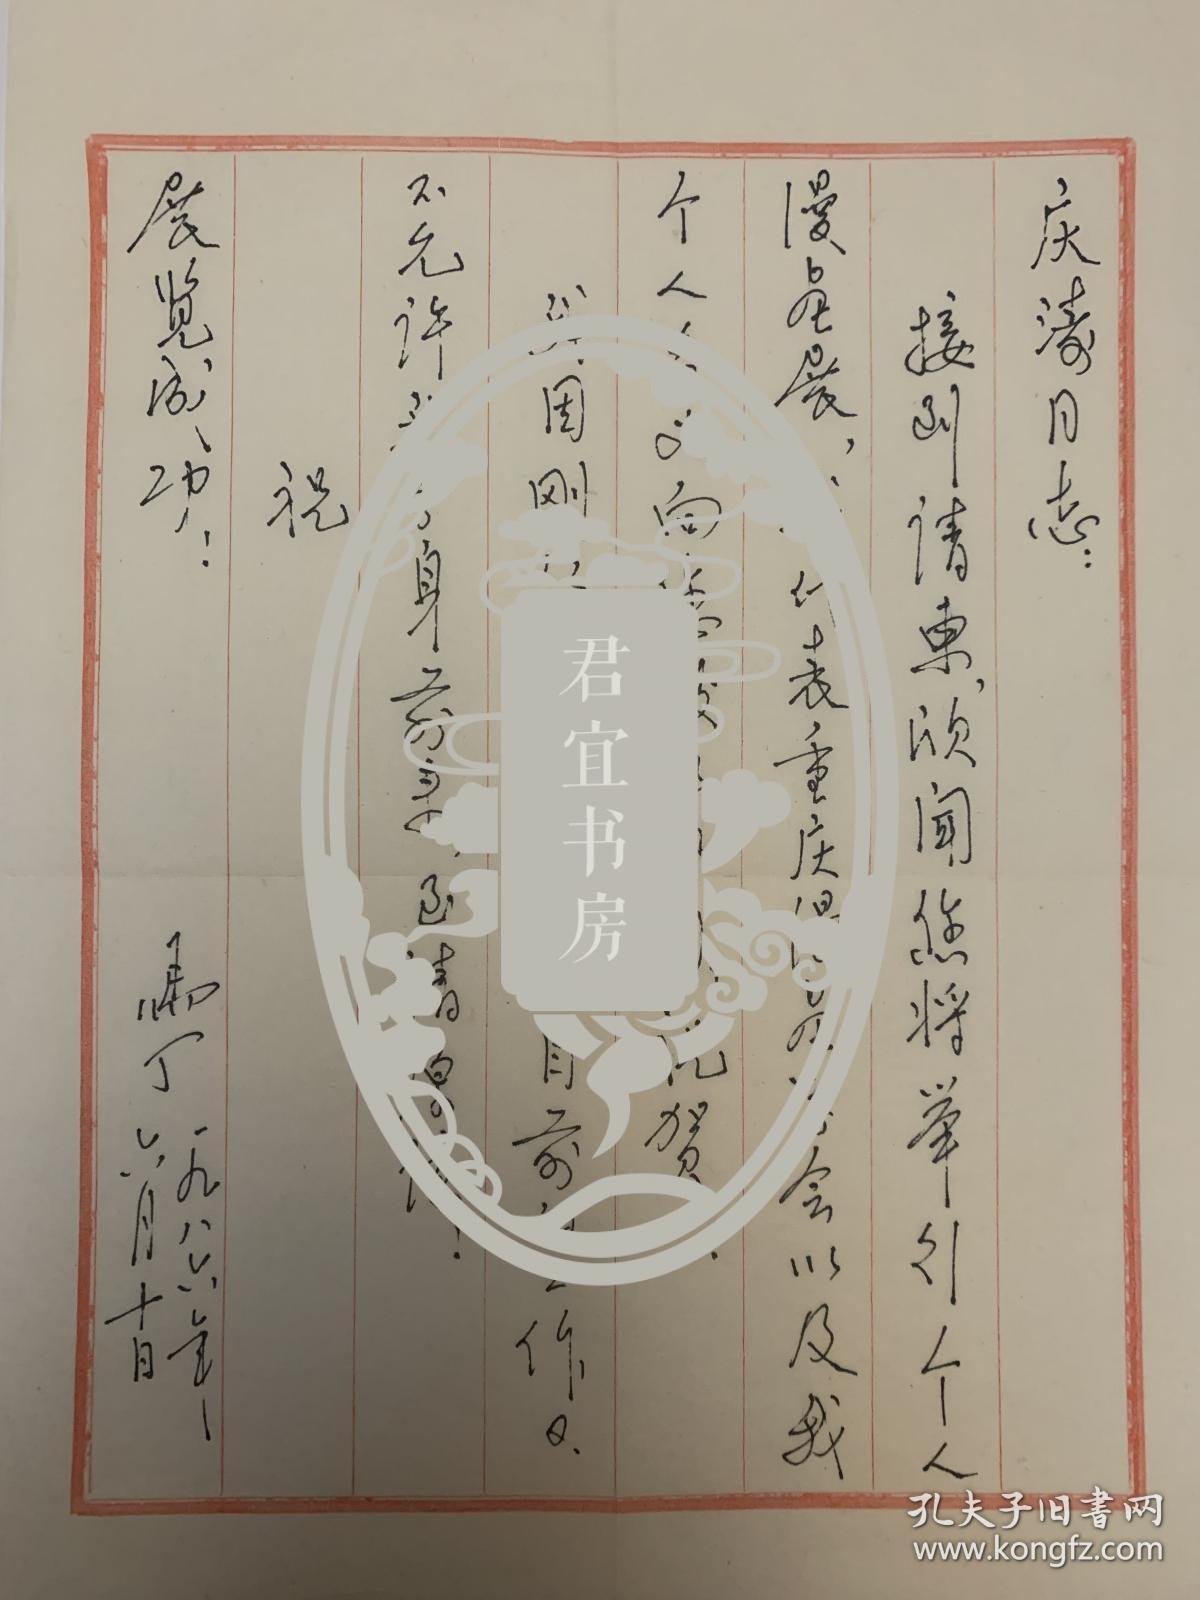 庆涛同志：
接到请柬，欣闻您将举行个人
漫画展，代表重庆漫画学会以及我
个人 向您 祝贺
我因刚 目前 工作又
不允许我 身前来，函请见谅！
祝
展览成功！
马丁
一九八六年
六月十日
君宜书房
孔夫子旧书网
www.kongfz.com